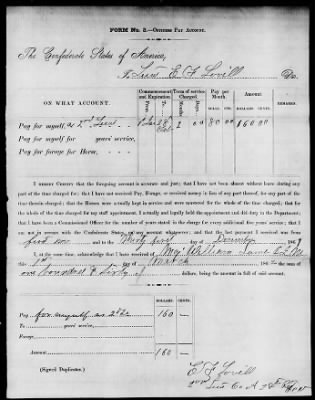 FORM No. 3.—OFFICERS' PAY ACCOUNT.
The Confederate States of America,
To Lieut E F Lovell Dr.
ON WHAT ACCOUNT.
Commencement and Expiration
Term of service Charged.
Pay per Month
Amount
REMARKS.
From
To
Months
Days
DOLLS
CENTS
DOLLARS
CENTS
Pay for myself, as 2nd Lieut 80 00 $160 00
Pay for myself for years' service,
Pay for forage for Horse,
I HEREBY CERTIFY that the foregoing account is accurate and just; that I have not been absent without leave during any part
of the time charged for; that I have not received Pay, Forage, or received money in lieu of any part thereof, for any part of the
time therein charged; that the Horses were actually kept in service and were mustered for the whole of the time charged; that for
the whole of the time charged for my staff appointment, I actually and legally held the appointment and did duty in the Department;
that I have been a Commissioned Officer for the number of years stated in the charge for every additional five years' service; that I
am not in arrears with the Confederate States, on any account whatsoever; and that the last payment I received was from
to the thirty first day of December 186
I, at the same time, acknowledge that I have received of Maj William Lamb
this 1st day of March 186 the sum of
one hundred & Sixty dollars, being the amount in full of said account.
DOLLARS
CENTS
Pay 160 —
years' service,
Forage,
Amount 160 —
(Signed Duplicates.)
E F Lovell
2nd Lieut Co A